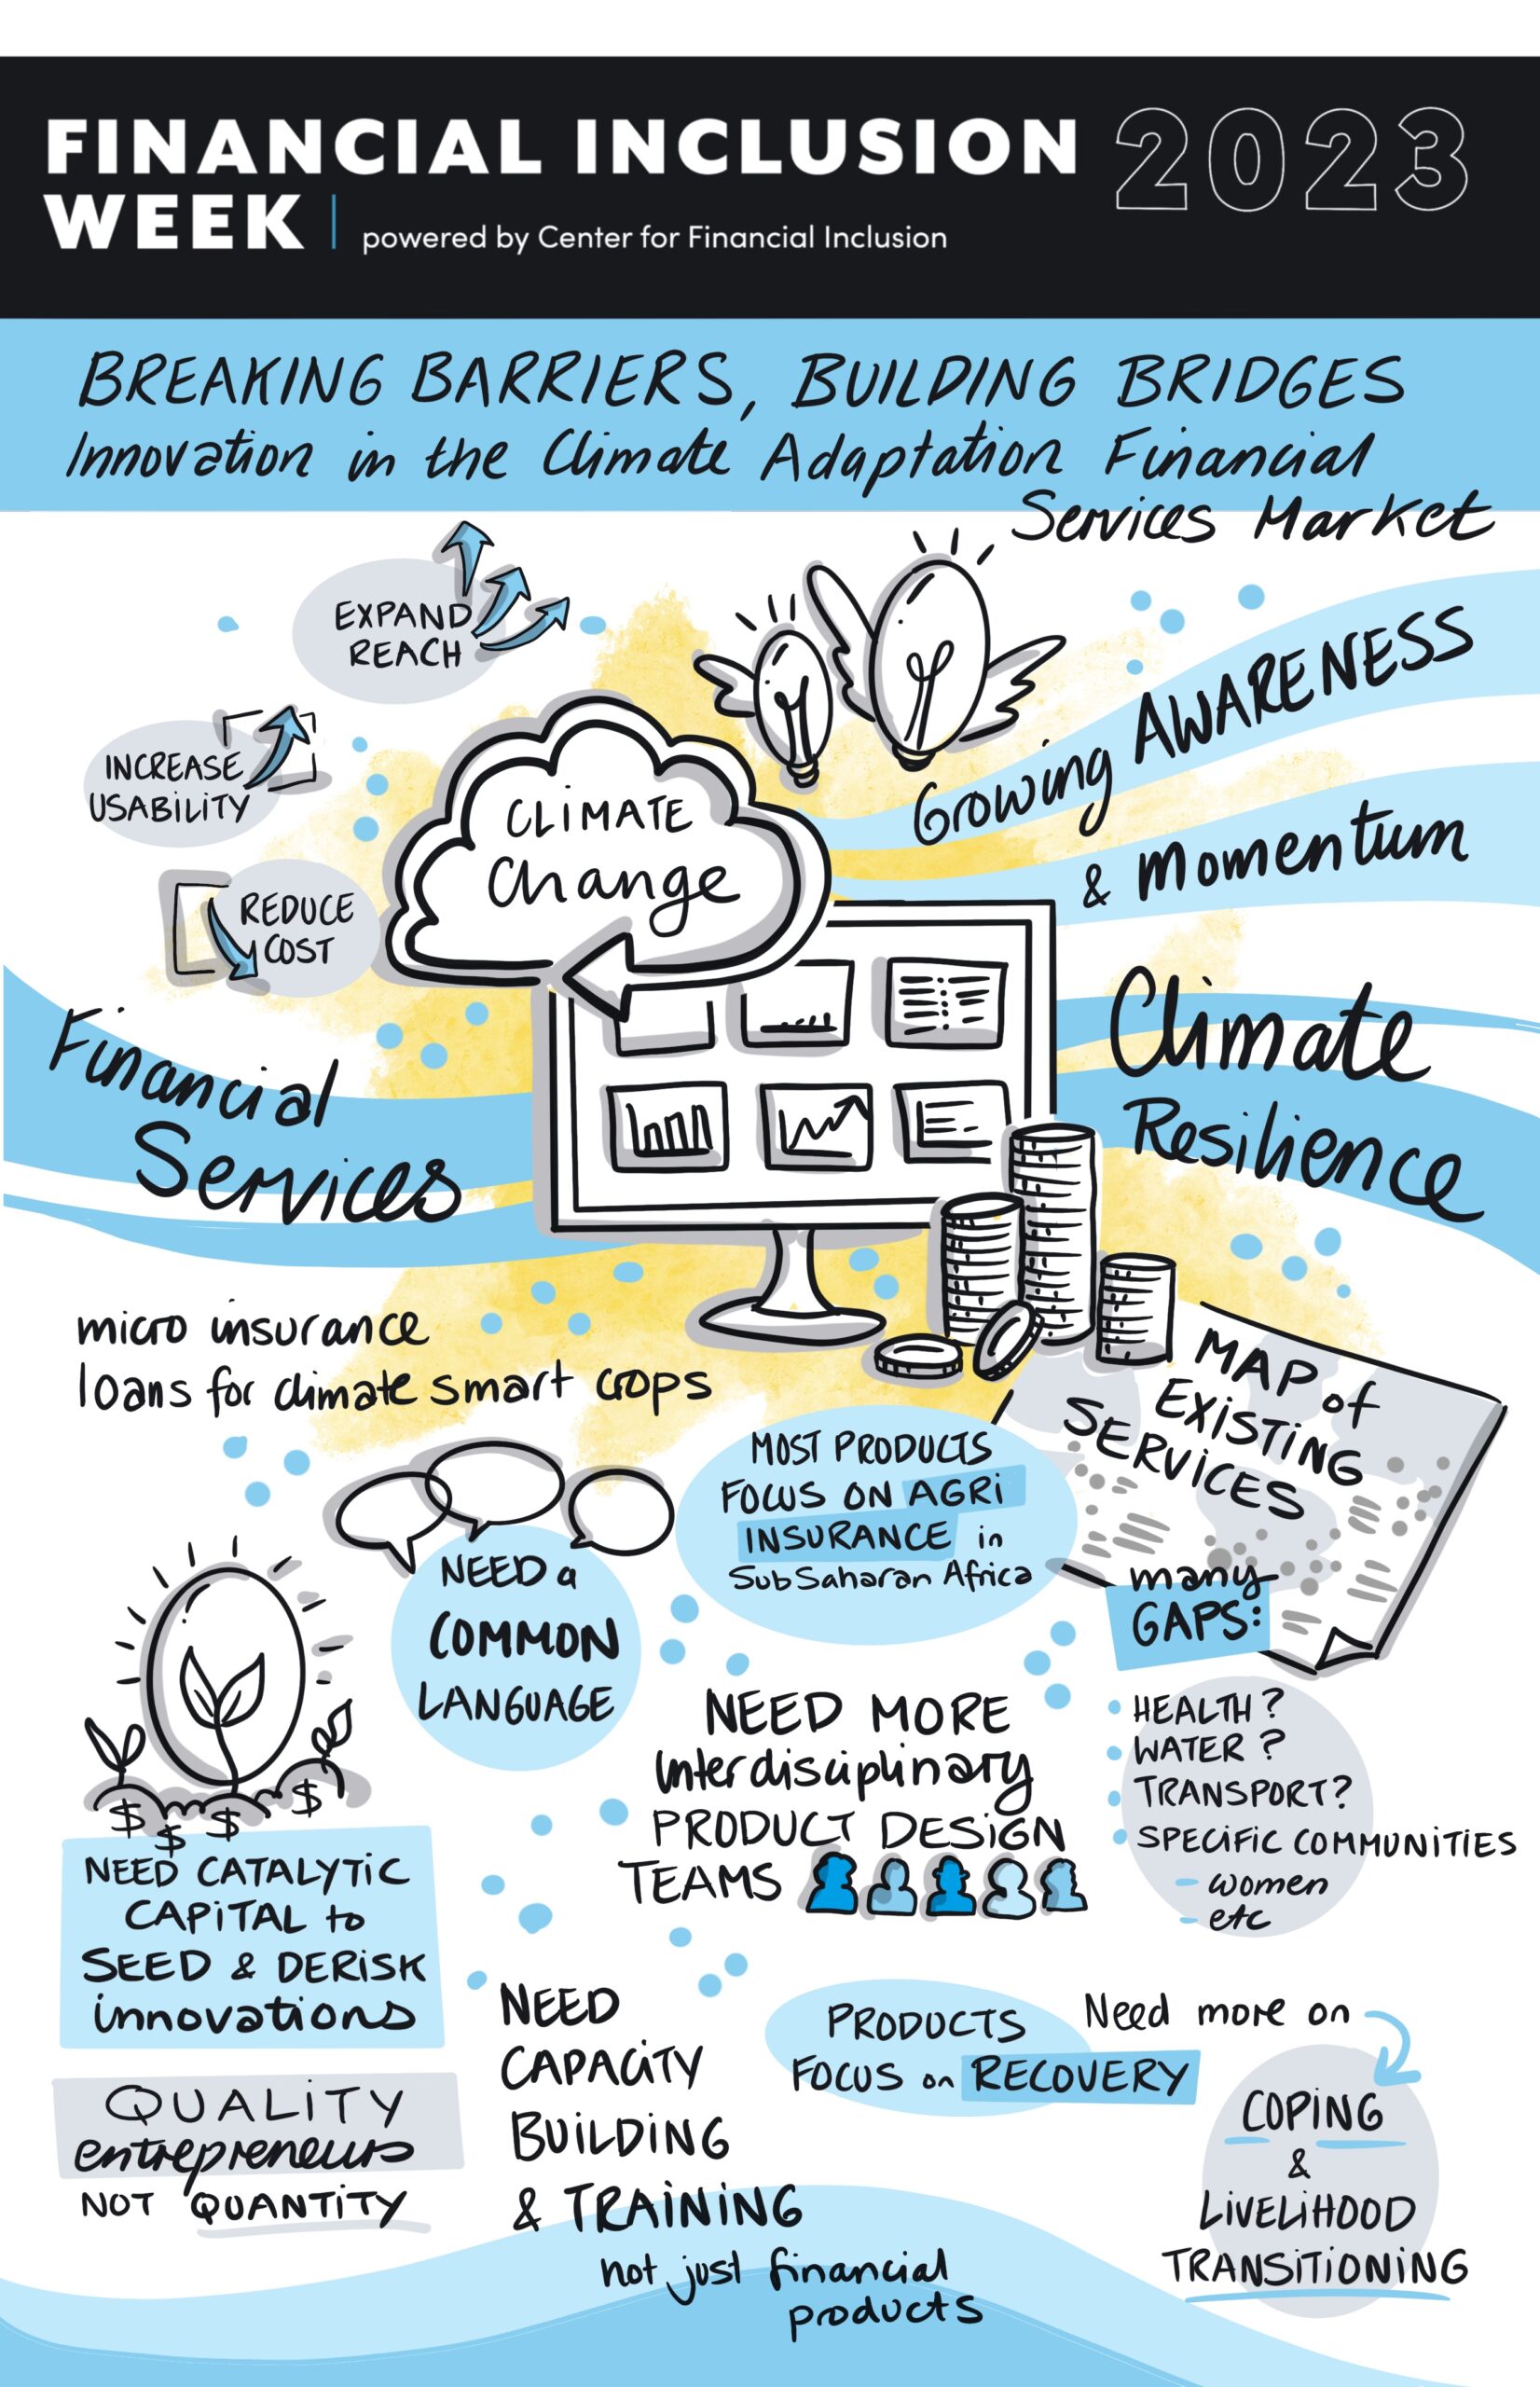 FINANCIAL INCLUSION 2023
WEEK | powered by Center for Financial Inclusion
BREAKING BARRIERS, BUILDING BRIDGES
Innovation in the Climate Adaptation Financial
Services Market
EXPAND
REACH
INCREASE
USABILITY
REDUCE
COST
CLIMATE
Change
Growing AWARENESS
& Momentum
Financial
Services
Climate
Resilience
micro insurance
loans for climate smart crops
MAP of
EXISTING
SERVICES
MOST PRODUCTS
FOCUS ON AGRI
INSURANCE in
SubSaharan Africa
many
GAPS:
HEALTH?
WATER?
TRANSPORT?
SPECIFIC COMMUNITIES
- women
- etc
NEED a
COMMON
LANGUAGE
NEED MORE
Interdisciplinary
PRODUCT DESIGN
TEAMS
$ $ $ $
NEED CATALYTIC
CAPITAL to
SEED & DERISK
innovations
QUALITY
entrepreneurs
NOT QUANTITY
NEED
CAPACITY
BUILDING
& TRAINING
not just financial
products
PRODUCTS
FOCUS on RECOVERY
Need more on
COPING
&
LIVELIHOOD
TRANSITIONING